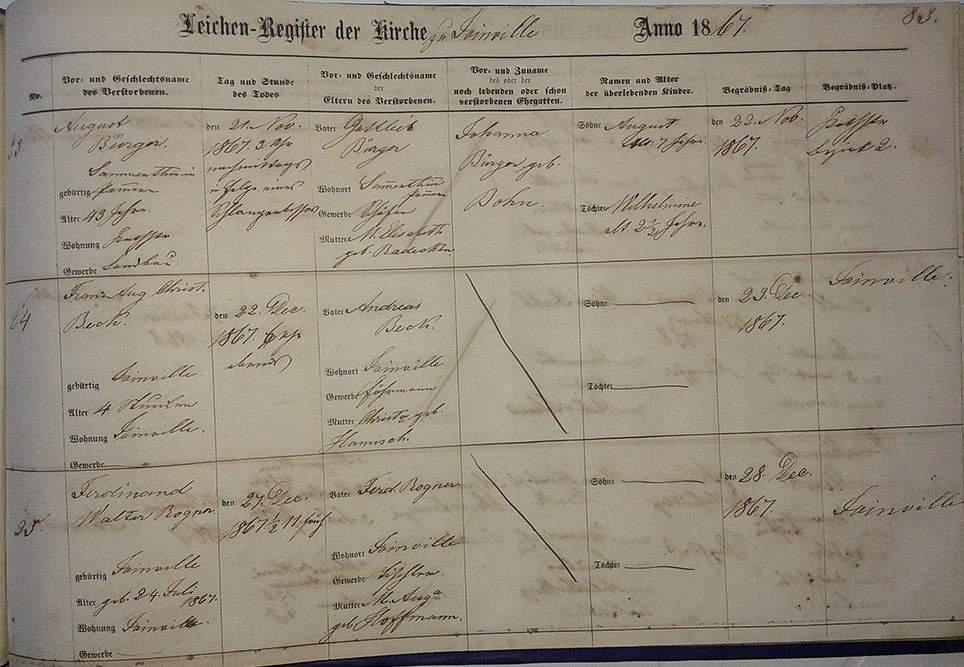 Leichen-Register der Kirche zu Joinville Anno 1867. 83.
No.
Vor- und Geschlechtsname
des Verstorbenen.
Tag und Stunde
des Todes
Vor- und Geschlechtsname
der
Eltern des Verstorbenen.
Vor- und Zuname
des oder der
noch lebenden oder schon
verstorbenen Ehegatten.
Namen und Alter
der überlebenden Kinder.
Begräbniß-Tag
Begräbniß-Platz.
August
Bürger.
gebürtig
Alter 43 Jahre
Wohnung
Gewerbe Landbau.
den 21. Nov.
1867. 3 Uhr
nachmittags
in Folge eines
Schlangenbisses
Vater Gottlieb
Bürger
Wohnort
Gewerbe Schäfer
Mutter M. Elisabeth
geb.
Johanna
Bürger geb.
Bohn.
Söhne August
alt 7 Jahre.
Töchter Wilhelmine
alt. 2 1/2 Jahre.
den 22. Nov.
1867.
2.
24
Franz Aug. Christ.
Beck.
gebürtig Joinville.
Alter 4 Stunden
Wohnung Joinville.
Gewerbe
den 22. Dec.
1867. 6 Uhr
abends
Vater Andreas
Beck.
Wohnort Joinville
Gewerbe Fuhrmann
Mutter geb.
Söhne
Töchter
den 23. Dec.
1867.
Joinville.
25.
Ferdinand
Walter Rogner
gebürtig Joinville
Alter geb. 24. Juli
1867.
Wohnung Joinville.
Gewerbe
den 27. Dec.
1867 1/2 11
Vater Ferd Rogner
Wohnort Joinville
Gewerbe Tischler.
Mutter M. Auga
geb. Hoffmann.
Söhne
Töchter
den 28. Dec.
1867.
Joinville